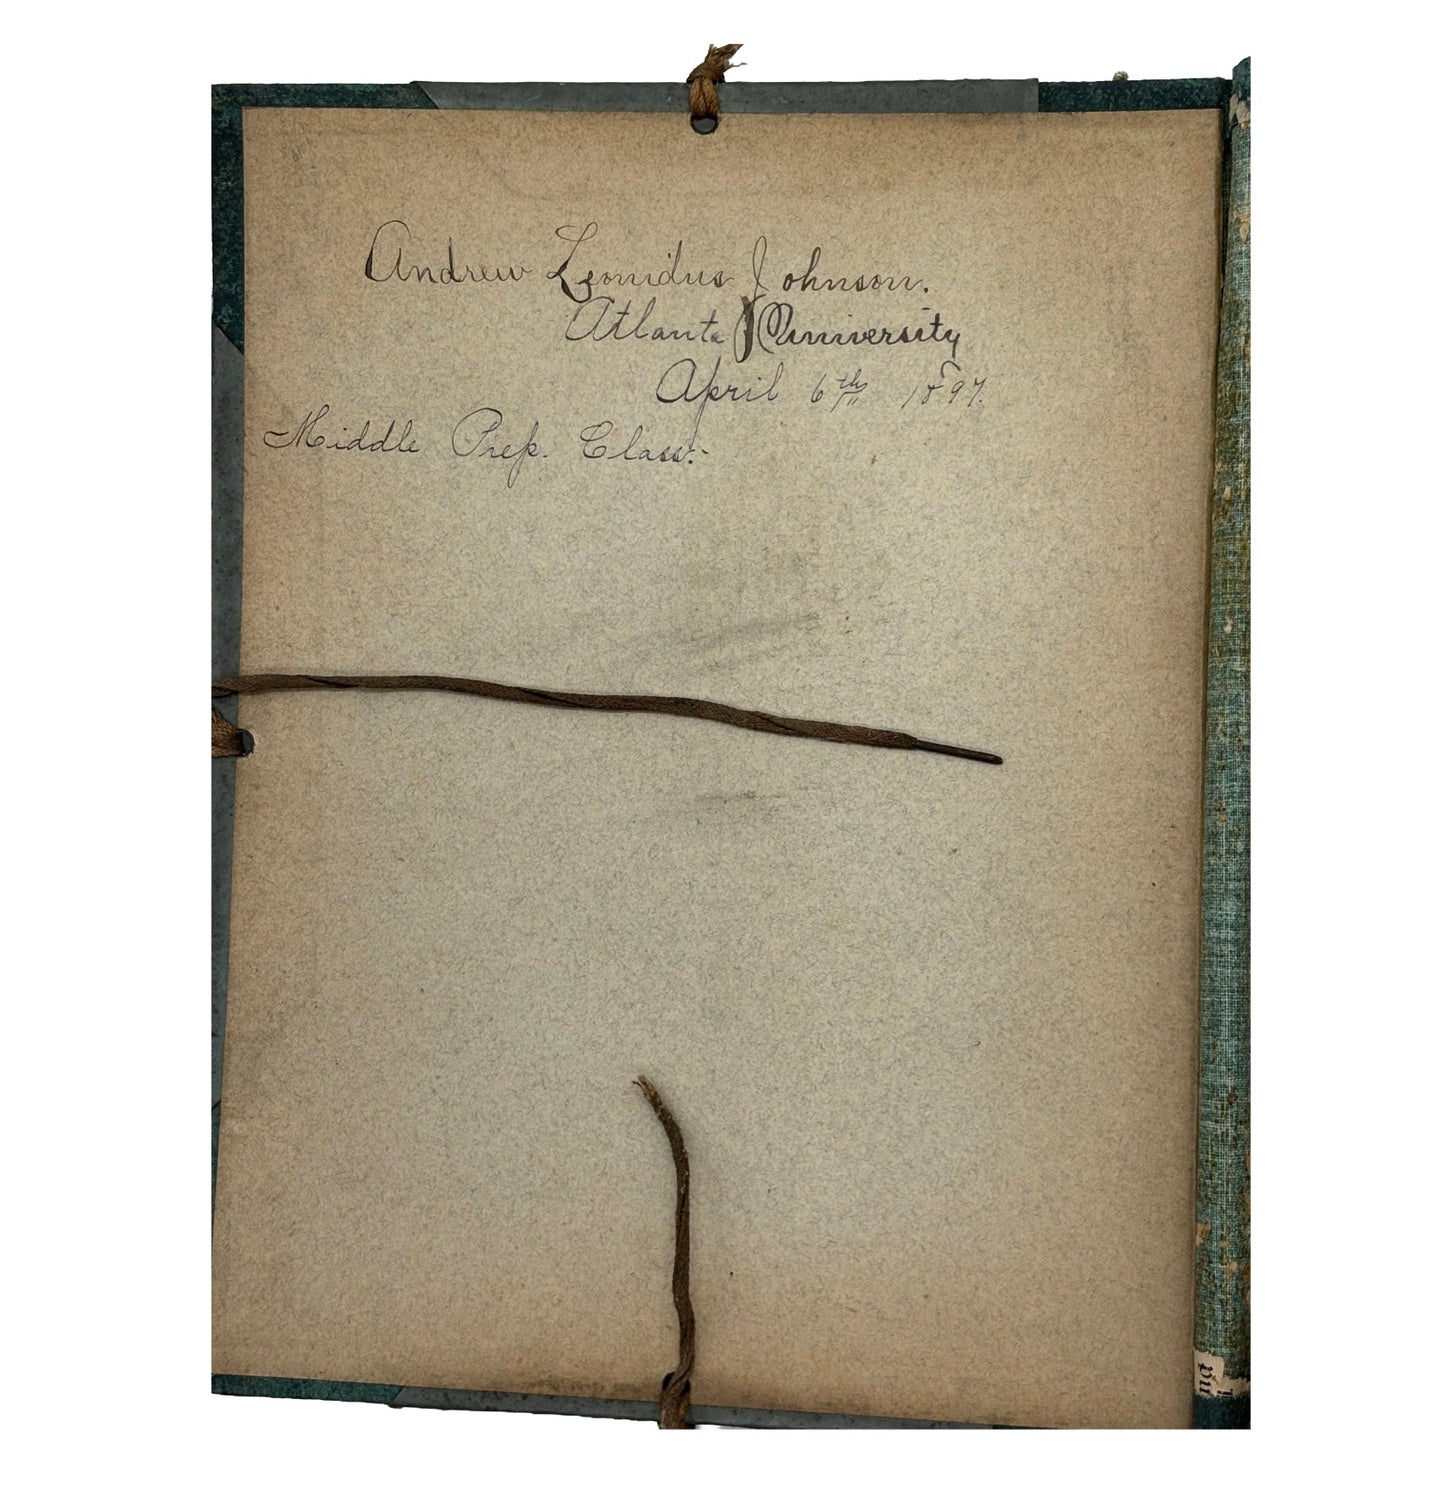 Andrew Leonidus Johnson.
Atlanta University
April 6th 1897.
Middle Prep. Class:-